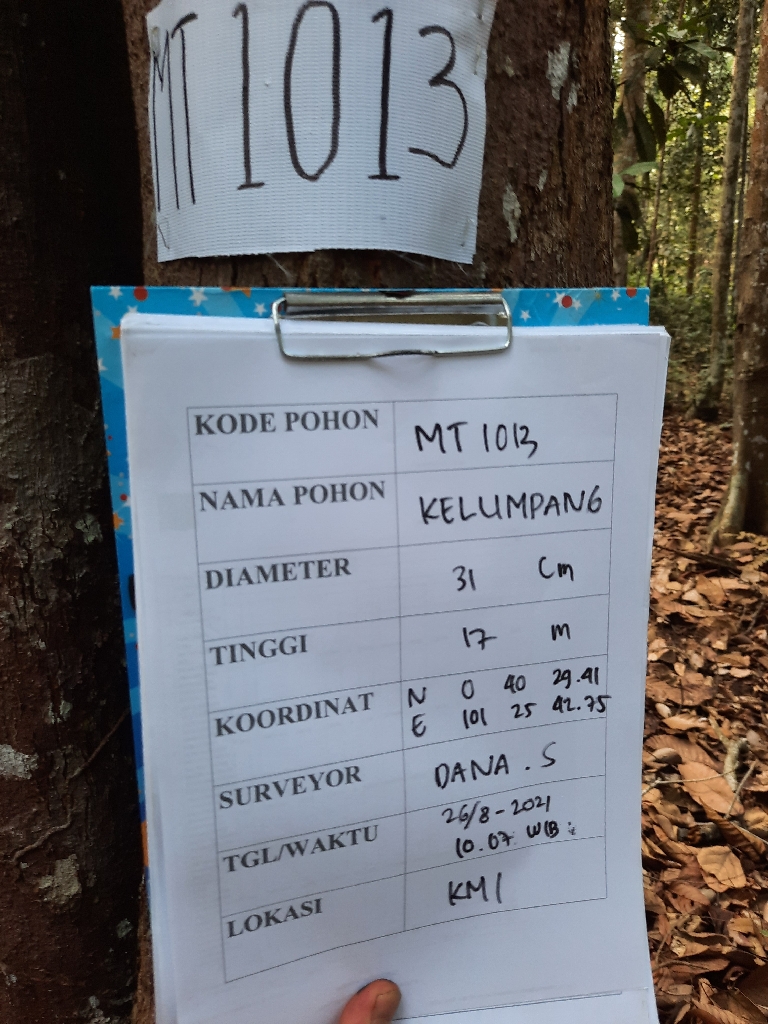 MT 1013
KODE POHON MT 1013
NAMA POHON KELUMPANG
DIAMETER 31 Cm
TINGGI 17 m
KOORDINAT N 0 40 29.41
E 101 25 42.75
SURVEYOR DANA . S
TGL/WAKTU 26/8-2021
10.07 WIB
LOKASI KM 1